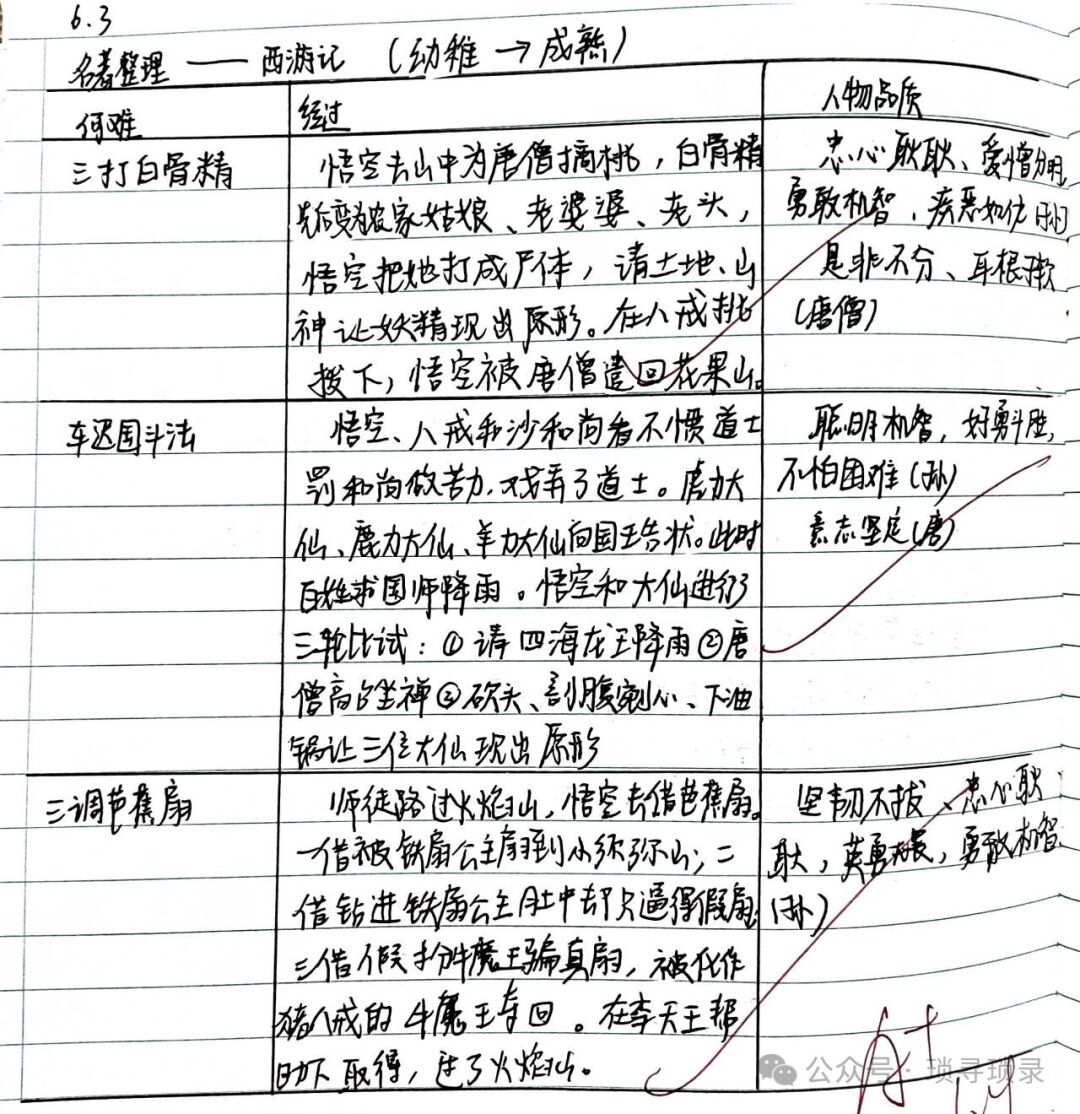 6.3
名著整理 —— 西游记 (幼稚 → 成熟)
何难 经过 人物品质
三打白骨精
悟空去山中为唐僧摘桃，白骨精
先后变为农家姑娘、老婆婆、老头，
悟空把她打成尸体，请土地、山
神让妖精现出原形。在八戒挑
拨下，悟空被唐僧遣回花果山。
忠心耿耿、爱憎分明
勇敢机智，疾恶如仇(孙)
是非不分、耳根子软
(唐僧)
车迟国斗法
悟空、八戒和沙和尚看不惯道士
罚和尚做苦力，戏弄了道士。虎力大
仙、鹿力大仙、羊力大仙向国王告状。此时
百姓求国师降雨。悟空和大仙进行了
三轮比试：①请四海龙王降雨②唐
僧高台坐禅③砍头、剖腹剜心、下油
锅让三位大仙现出原形
聪明机智，好勇斗胜，
不怕困难(孙)
意志坚定(唐)
三调芭蕉扇
师徒路过火焰山，悟空去借芭蕉扇。
一借被铁扇公主扇到小须弥山；二
借钻进铁扇公主肚中却只逼得假扇；
三借假扮牛魔王骗真扇，被化作
猪八戒的牛魔王夺回。在李天王帮
助下取得，过了火焰山。
坚韧不拔、忠心耿
耿，英勇无畏，勇敢机智
(孙)
A+
公众号·琐寻琐录